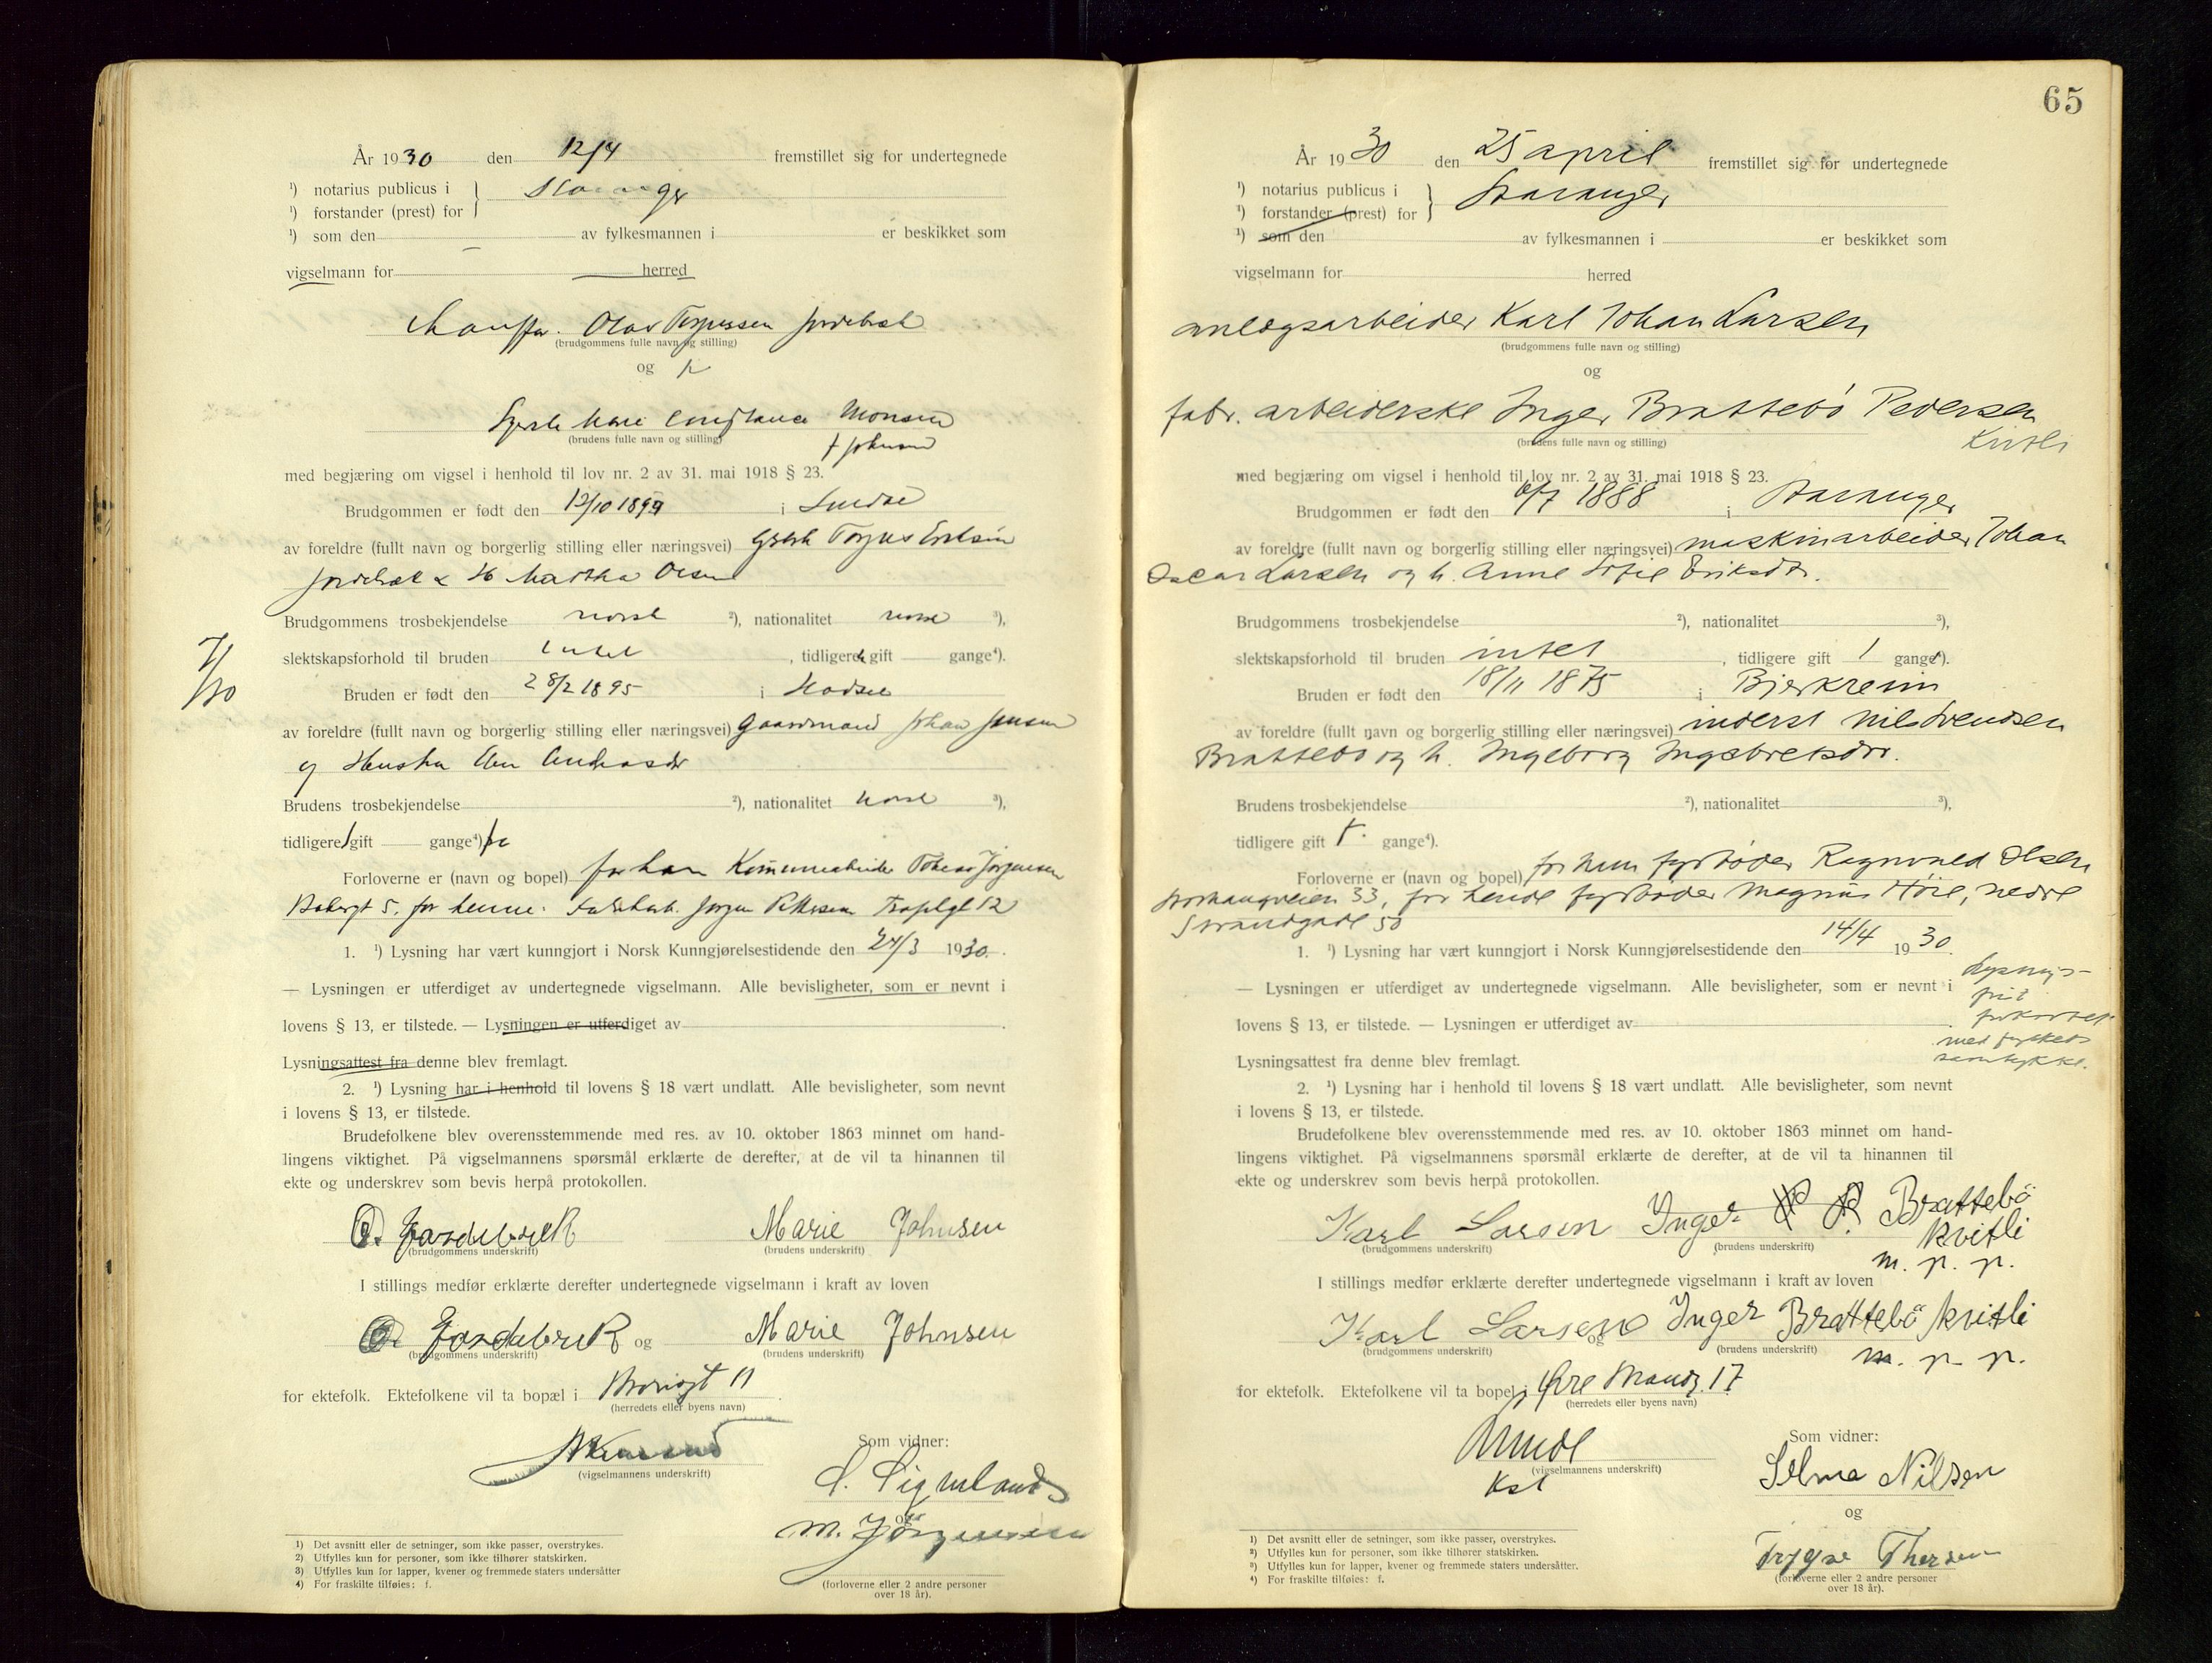 År 1930 den 12/4 fremstillet sig for undertegnede
¹) notarius publicus i
¹) forstander (prest) for
¹) som den av fylkesmannen i er beskikket som
vigselmann for herred
Olav
(brudgommens fulle navn og stilling)
og
Monsen
(brudens fulle navn og stilling)
f Johnsen
med begjæring om vigsel i henhold til lov nr. 2 av 31. mai 1918 § 23.
Brudgommen er født den i
av foreldre (fullt navn og borgerlig stilling eller næringsvei)
Martha Olsen
Brudgommens trosbekjendelse norsk ²), nationalitet norsk ³),
slektskapsforhold til bruden intet , tidligere gift gange⁴).
7/30
Bruden er født den 28/2 1895 i
av foreldre (fullt navn og borgerlig stilling eller næringsvei) gaardmand Johan Jensen
og Hustru
Brudens trosbekjendelse ²), nationalitet norsk ³),
tidligere gift gange⁴)
Forloverne er (navn og bopel) for ham Kommunearbeider Tobias Jørgensen
5, for henne: Jørgen 12
1. ¹) Lysning har vært kunngjort i Norsk Kunngjørelsestidende den 24/3 1930.
— Lysningen er utferdiget av undertegnede vigselmann. Alle bevisligheter, som er nevnt i
lovens § 13, er tilstede. — Lysningen er utferdiget av .
Lysningsattest fra denne blev fremlagt.
2. ¹) Lysning har i henhold til lovens § 18 vært undlatt. Alle bevisligheter, som nevnt
i lovens § 13, er tilstede.
Brudefolkene blev overensstemmende med res. av 10. oktober 1863 minnet om hand-
lingens viktighet. På vigselmannens spørsmål erklærte de derefter, at de vil ta hinannen til
ekte og underskrev som bevis herpå protokollen.
Marie Johnsen
(brudgommens underskrift) (brudens underskrift)
I stillings medfør erklærte derefter undertegnede vigselmann i kraft av loven
og Marie Johnsen
(brudgommens underskrift) (brudens underskrift)
for ektefolk. Ektefolkene vil ta bopæl i 11 .
(herredets eller byens navn)
Som vidner:
(vigselmannens underskrift)
og
M. Jørgensen
(forloverne eller 2 andre personer
over 18 år).
1) Det avsnitt eller de setninger, som ikke passer, overstrykes.
2) Utfylles kun for personer, som ikke tilhører statskirken.
3) Utfylles kun for lapper, kvener og fremmede staters undersåtter
4) For fraskilte tilføies: f.
65
År 1930 den 25 april fremstillet sig for undertegnede
¹) notarius publicus i
¹) forstander (prest) for
Stavanger
¹) som den av fylkesmannen i er beskikket som
vigselmann for herred
anlægsarbeider Karl Johan Larsen
(brudgommens fulle navn og stilling)
og
fabr. arbeiderske Inger Brattebö Pedersen
(brudens fulle navn og stilling)
Kvitli
med begjæring om vigsel i henhold til lov nr. 2 av 31. mai 1918 § 23.
Brudgommen er født den 6/7 1888 i Stavanger
av foreldre (fullt navn og borgerlig stilling eller næringsvei) maskinarbeider Johan
Oscar Larsen og h. Anne Sofie Eriksdtr.
Brudgommens trosbekjendelse ²), nationalitet ³),
slektskapsforhold til bruden intet , tidligere gift 1 gange⁴).
Bruden er født den 18/11 1875 i Bjerkreim
av foreldre (fullt navn og borgerlig stilling eller næringsvei) inderst Nils Svendsen
Brattebö og h. Ingeborg Ingebretsdtr.
Brudens trosbekjendelse ²), nationalitet ³),
tidligere gift gange⁴).
Forloverne er (navn og bopel) for ham fyrbøder Ragnvald Olsen
Storhaugveien 33, for hende fyrbøder Magnus Höie, nedre
Strandgade 50
1. ¹) Lysning har vært kunngjort i Norsk Kunngjørelsestidende den 14/4 1930.
— Lysningen er utferdiget av undertegnede vigselmann. Alle bevisligheter, som er nevnt i
lovens § 13, er tilstede. — Lysningen er utferdiget av .
Lysnings-
frist
forkortet
med fylkets
samtykke.
Lysningsattest fra denne blev fremlagt.
2. ¹) Lysning har i henhold til lovens § 18 vært undlatt. Alle bevisligheter, som nevnt
i lovens § 13, er tilstede.
Brudefolkene blev overensstemmende med res. av 10. oktober 1863 minnet om hand-
lingens viktighet. På vigselmannens spørsmål erklærte de derefter, at de vil ta hinannen til
ekte og underskrev som bevis herpå protokollen.
Karl Larsen Inger Brattebö
Kvitli
(brudgommens underskrift) (brudens underskrift)
m. p. p.
I stillings medfør erklærte derefter undertegnede vigselmann i kraft av loven
Karl Larsen og Inger Brattebö Kvitli
(brudgommens underskrift) (brudens underskrift)
m. p. p.
for ektefolk. Ektefolkene vil ta bopel i 17
(herredets eller byens navn)
Som vidner:
(vigselmannens underskrift)
Kst
Selma Nilsen
og
Trygve
(forloverne eller 2 andre personer
over 18 år).
¹) Det avsnitt eller de setninger, som ikke passer, overstrykes.
²) Utfylles kun for personer, som ikke tilhører statskirken.
³) Utfylles kun for lapper, kvener og fremmede staters undersåtter.
⁴) For fraskilte tilføies: f.